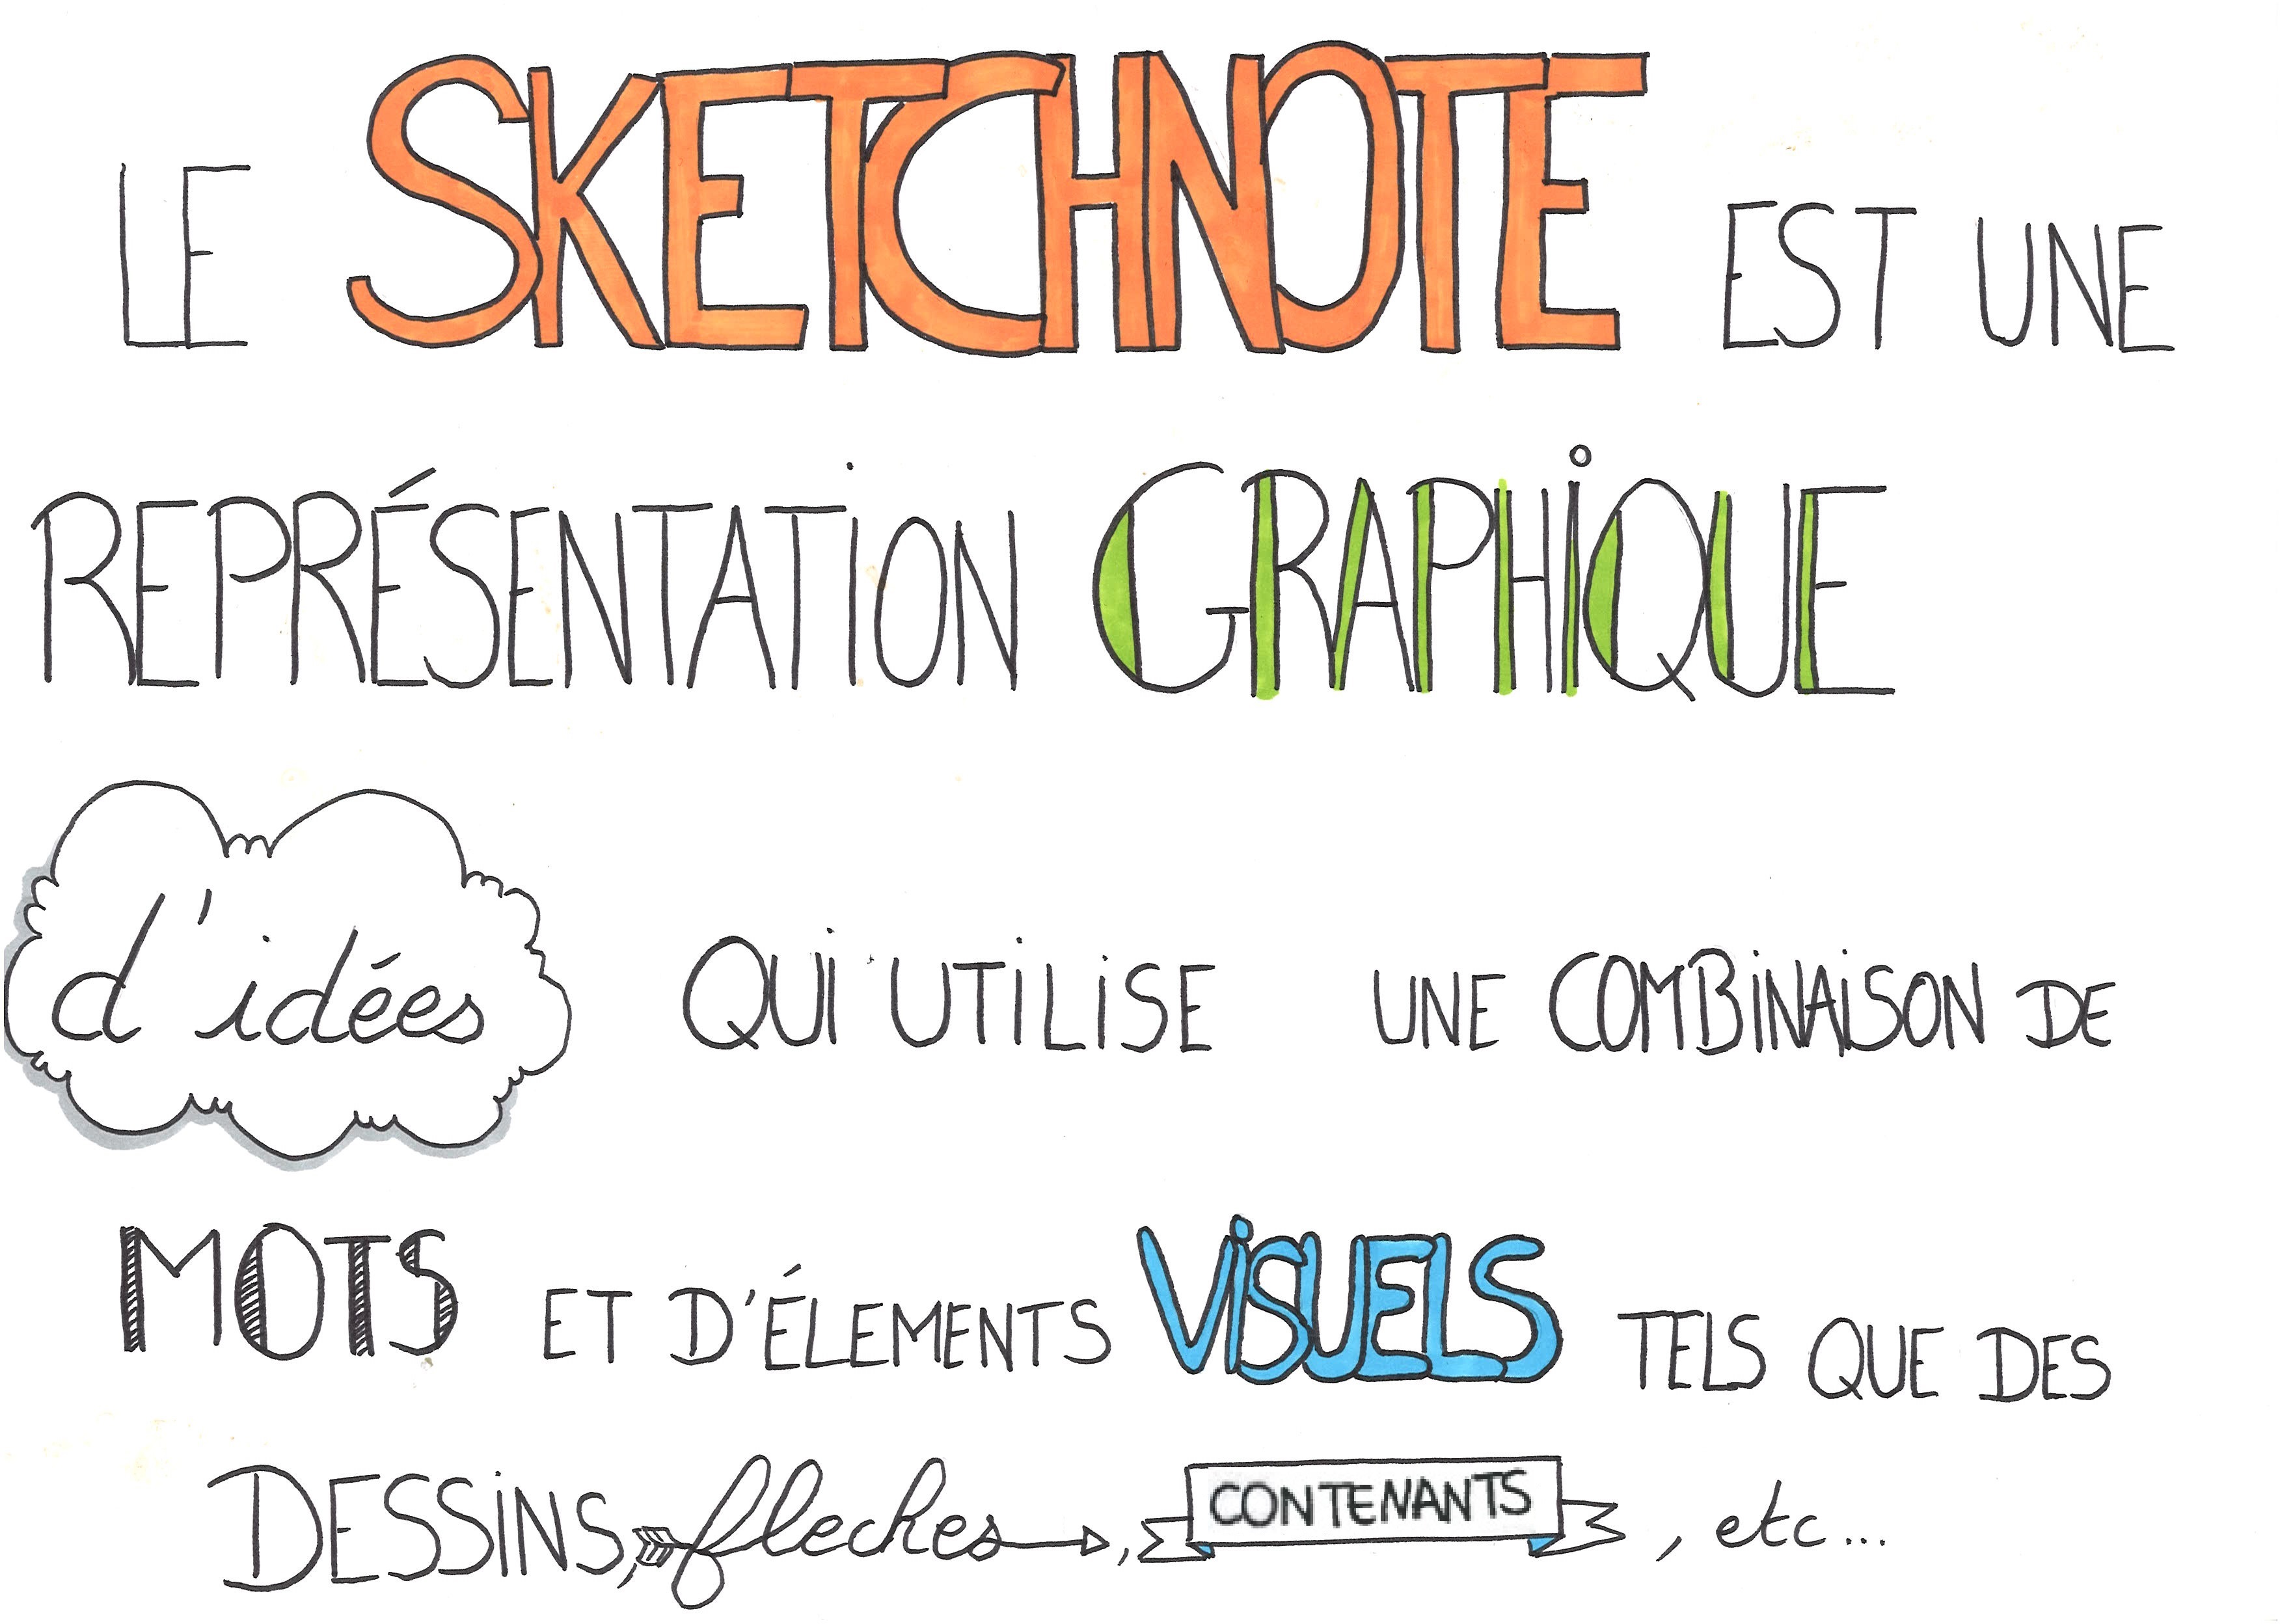 LE SKETCHNOTE EST UNE
REPRÉSENTATION GRAPHIQUE
d'idées QUI UTILISE UNE COMBINAISON DE
MOTS ET D'ÉLEMENTS VISUELS TELS QUE DES
DESSINS, fleches, CONTENANTS, etc...